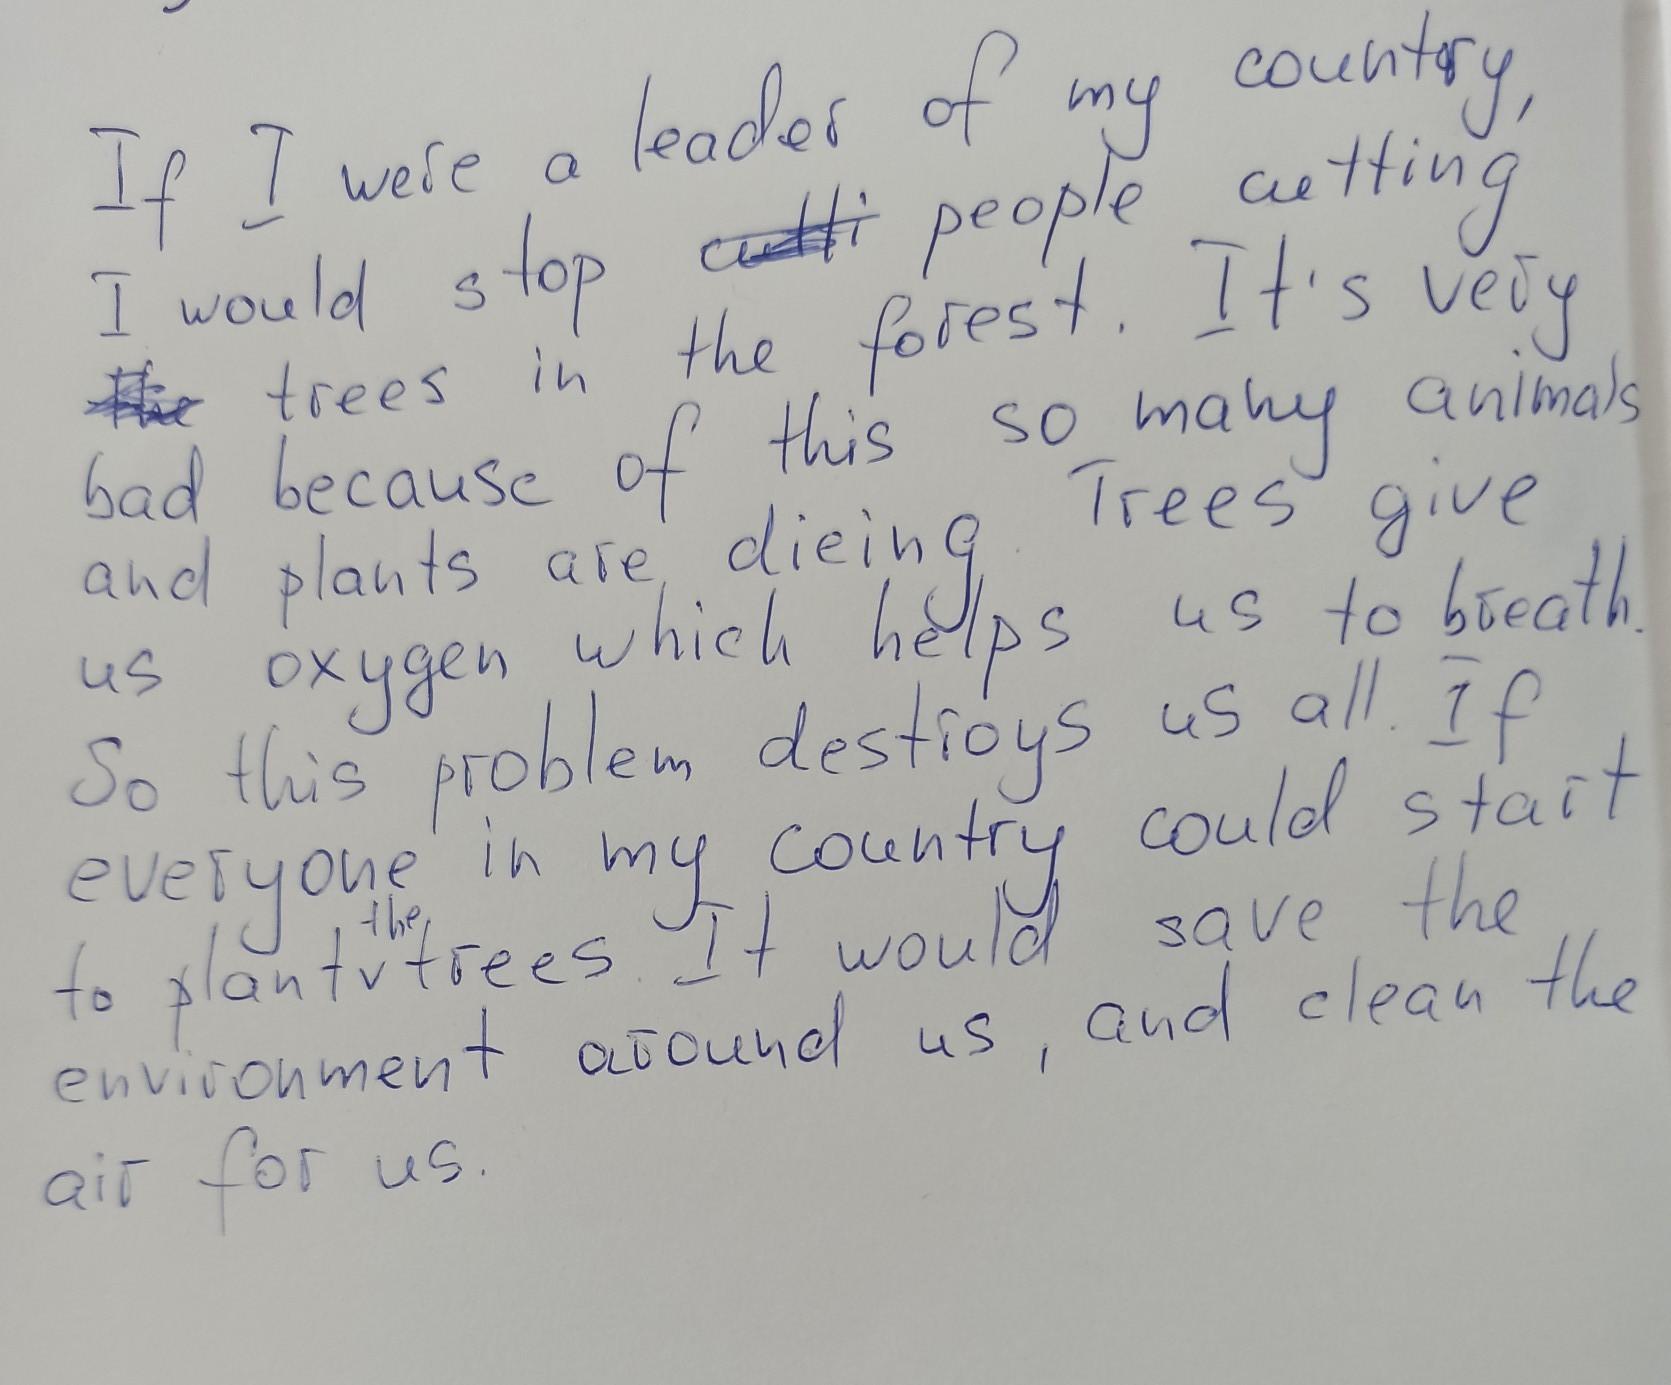 If I were a leader of my country,
I would stop people cutting
trees in the forest. It's very
bad because of this so many animals
and plants are dieing. Trees give
us oxygen which helps us to breath.
So this problem destroys us all. If
everyone in my country could start
to plant the trees. It would save the
environment around us, and clean the
air for us.